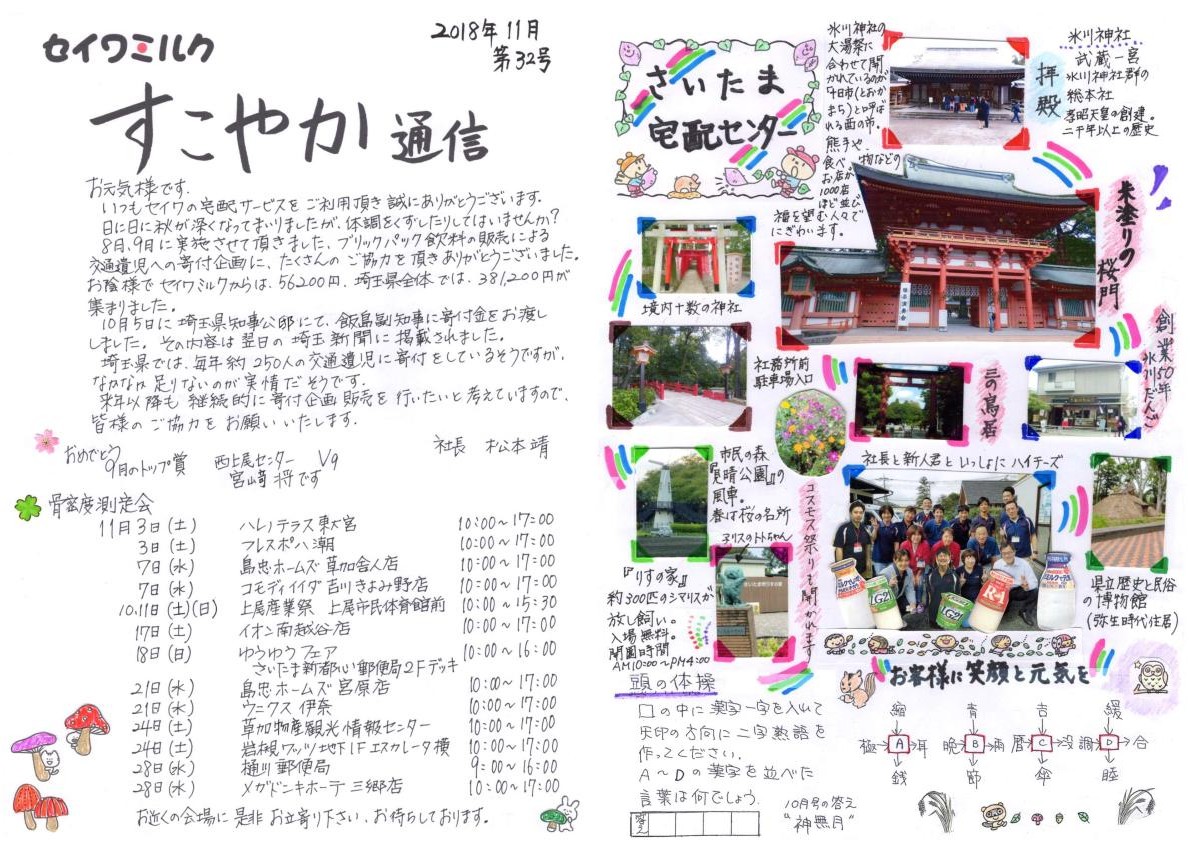 セイワミルク
2018年11月
第32号
すこやか通信
お元気様です.
いつもセイワの宅配サービスをご利用頂き誠にありがとうございます.
日に日に秋が深くなってまいりましたが、体調をくずしたりしてはいませんか?
8月、9月に実施させて頂きました、ブリックパック飲料の販売による
交通遺児への寄付企画に、たくさんのご協力を頂きありがとうございました。
お陰様でセイワミルクからは、56200円、埼玉県全体では、381,200円が
集まりました。
10月5日に埼玉県知事公邸にて、飯島副知事に寄付金をお渡し
しました。その内容は翌日の埼玉新聞に掲載されました。
埼玉県では、毎年約250人の交通遺児に寄付をしているそうですが、
なかなか足りないのが実情だそうです.
来年以降も継続的に寄付企画販売を行いたいと考えていますので、
皆様のご協力をお願いいたします.
社長 松本 靖
おめでとう
9月のトップ賞 西上尾センター V9
宮﨑 将です
骨密度測定会
11月3日(土) ハレノテラス東大宮 10:00~17:00
3日(土) フレスポ八潮 10:00~17:00
7日(水) 島忠ホームズ草加舎人店 10:00~17:00
7日(水) コモディイイダ吉川きよみ野店 10:00~17:00
10.11日(土)(日) 上尾産業祭 上尾市民体育館前 10:00~15:30
17日(土) イオン南越谷店 10:00~17:00
18日(日) ゆうゆうフェア 10:00~16:00
さいたま新都心郵便局2Fデッキ
21日(水) 島忠ホームズ宮原店 10:00~17:00
21日(水) ウニクス伊奈 10:00~17:00
24日(土) 草加物産観光情報センター 10:00~17:00
24日(土) 岩槻ワッツ地下1Fエスカレータ横 10:00~17:00
28日(水) 桶川郵便局 9:00~16:00
28日(水) メガドンキホーテ三郷店 10:00~17:00
お近くの会場に是非お立寄り下さい、お待ちしております。
さいたま
宅配センター
氷川神社の
大湯祭に
合わせて開
かれているのが
「十日市(とおか
まち)と呼ば
れる酉の市。
熊手や、
食べ物などの
お店が
1000店
ほど並び
福を望む人々で
にぎわいます。
拝殿
氷川神社
武蔵一宮
氷川神社群の
総本社
孝昭天皇の創建.
二千年以上の歴史
朱塗りの桜門
境内十数の神社
社務所前
駐車場入口
三の鳥居
創業50年
氷川だんご
市民の森
『見晴公園』の
風車。
春は桜の名所
コスモス祭りも開かれます
社長と新人君といっしょに ハイチーズ
LG21
LG21
R-1
県立歴史と民俗
の博物館
(弥生時代住居)
『りすの家』
約300匹のシマリスが
放し飼い。
入場無料。
開園時間
AM10:00~PM4:00
お客様に笑顔と元気を
頭の体操
□の中に漢字一字を入れて
矢印の方向に二字熟語を
作ってください。
A~Dの漢字を並べた
言葉は何でしょう.
答え
10月号の答え
“神無月”
縮 青 吉 緩
極 A 耳 晩 B 雨 暦 C 没 調 D 合
銭 節 傘 睦